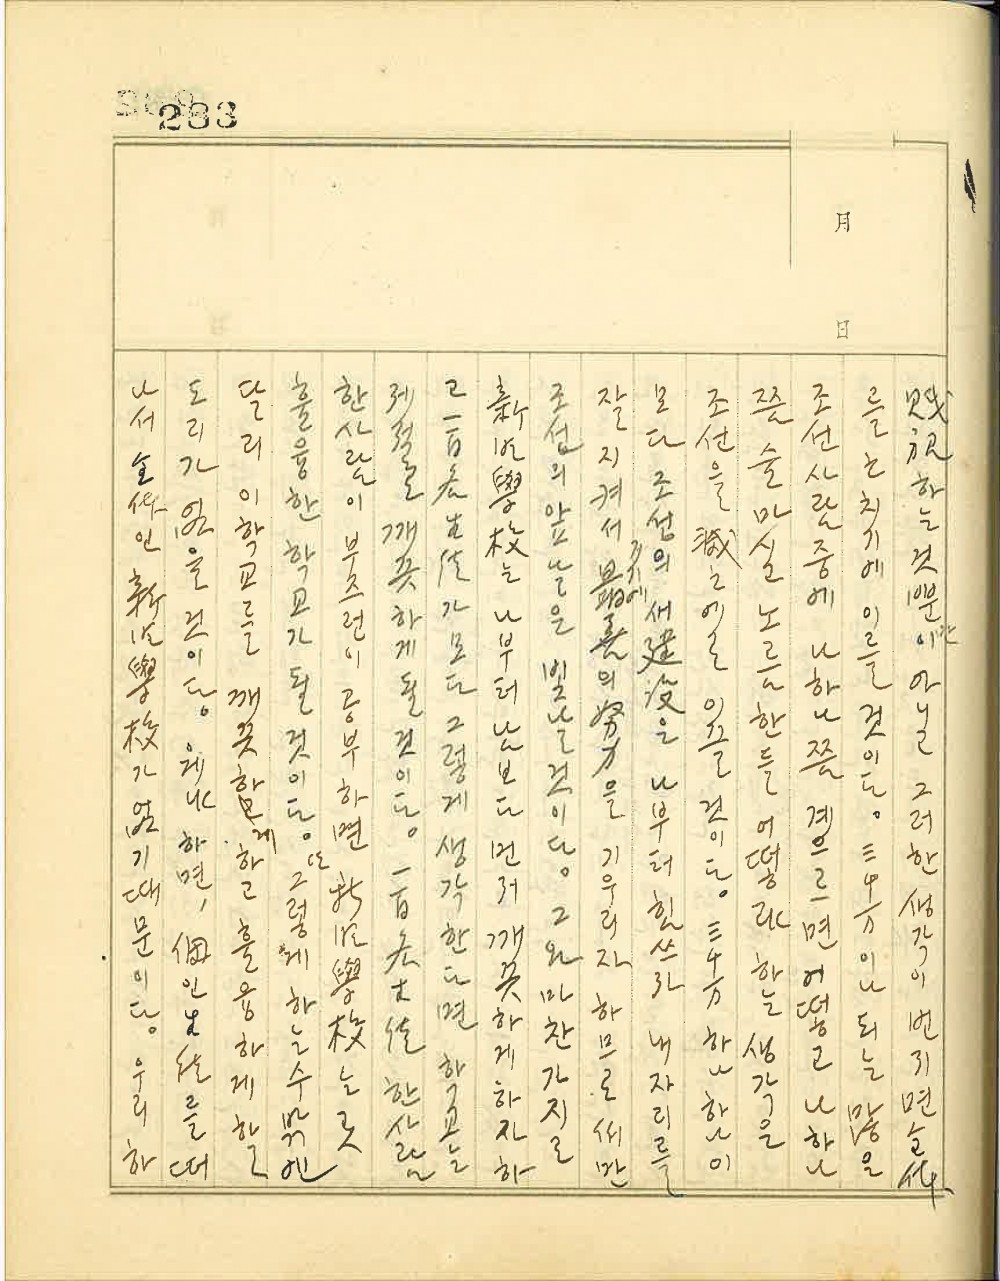 283
月
日
賤視하는것뿐만이아닐 그러한생각이번지면全体
를 는치기에이를것이다。三千万이나되는많은
조선사람중에 나하나쯤 결으르면어떻고나하나
쯤 술마실노름한들 어떻랴 하는생각은
조선을 滅亡에로이끌 것이다。三千万하나하나이
모다 조선의새建設을 나부터힘쓰라 내자리를
잘지켜서 거기에最善의努力을 기우리자 하므로써만
조선의앞날은 빛날것이다。그와마찬가지로
新 學校는나부터남보다먼저깨끗하게하자하
고一百 生徒가모다그렇게생각한다면 학교는
제절로깨끗하게될것이다。一百 生徒 한사람
한사람이부즈런이공부하면 新 學校는곳
훌융한 학교가될것이다。또그렇게하는수밖엔
달리이학교를 깨끗하게하고훌융하게할
도리가없을것이다。웨냐하면, 個人生徒를떠
나서全体인新 學校가없기때문이다。우리하